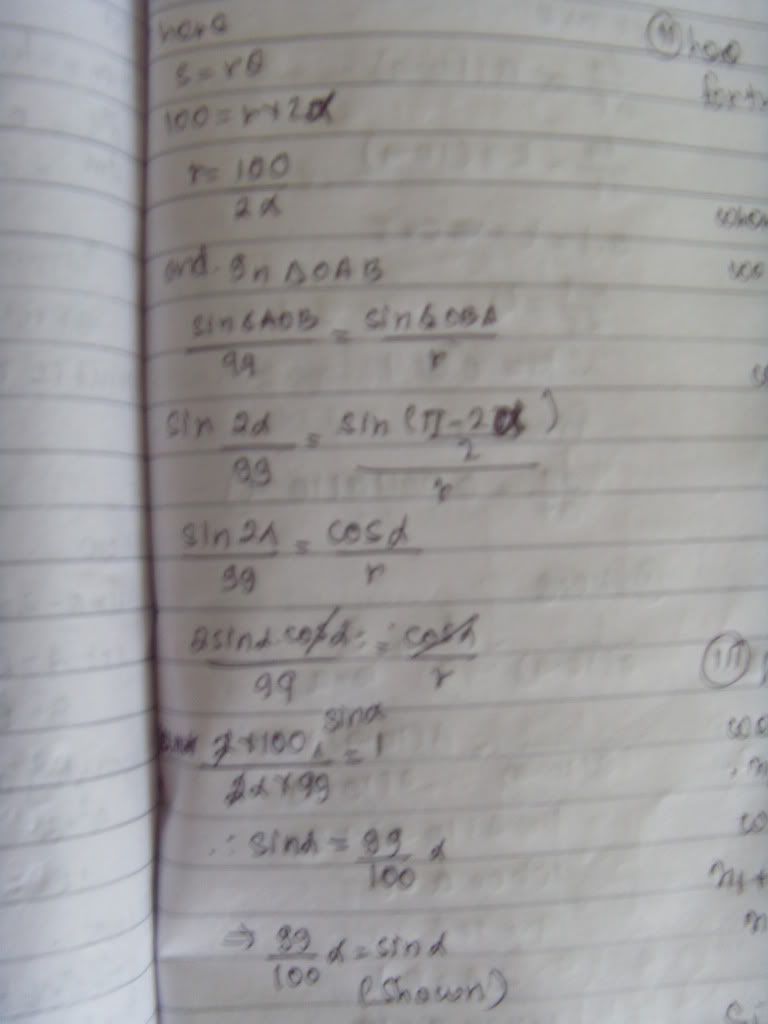 here
s = rθ
100 = r × 2α
r = 100/2α
and. In ΔOAB
sin∠AOB/99 = sin∠OBA/r
sin 2α/99 = sin (π-2α/2)/r
sin 2α/99 = cosα/r
2sinα.cosα/99 = cosα/r
2×100 × sinα/2α×99 = 1
∴ sinα = 99/100 α
⇒ 99/100 α = sinα
(Shown)
(ii)
(iii)